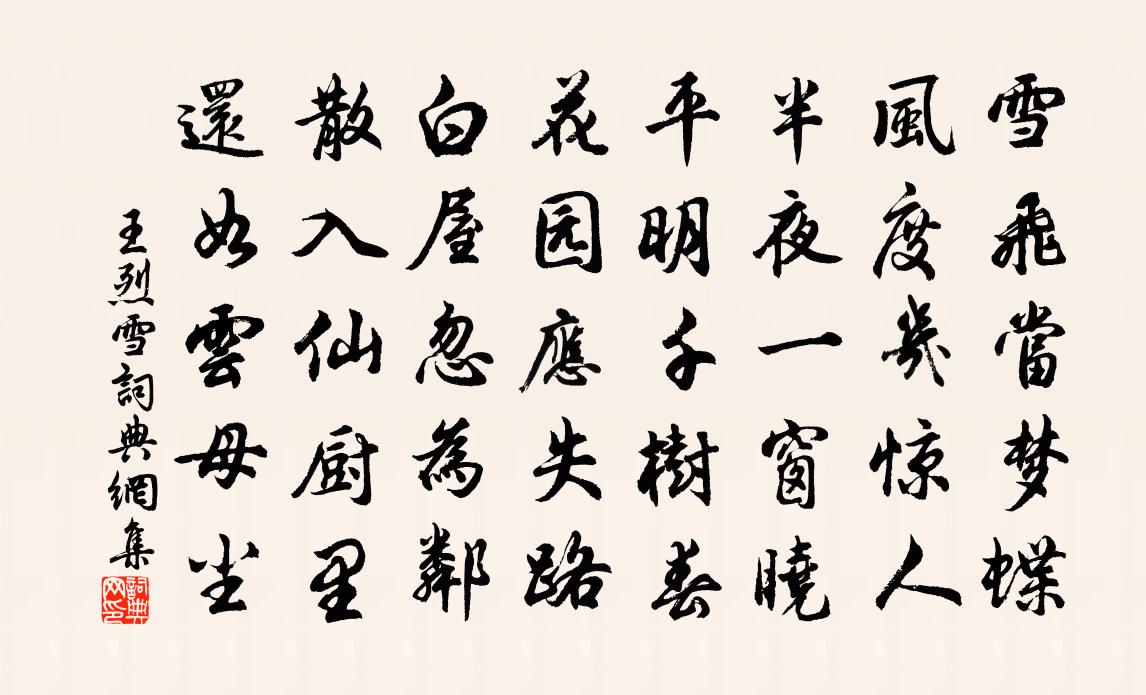 雪飛當梦蝶
風度幾惊人
半夜一窗曉
平明千樹春
花园應失路
白屋忽為鄰
散入仙厨里
還如雲母尘
王烈雪詞典網集
詞典网印